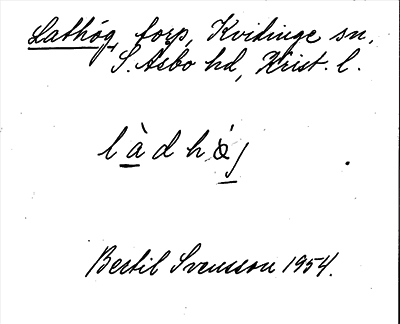 Lathög, torp, Kvidinge sn,
S. Åsbo hd, Krist. l.
làdhǿj
Bertil Svensson 1954.